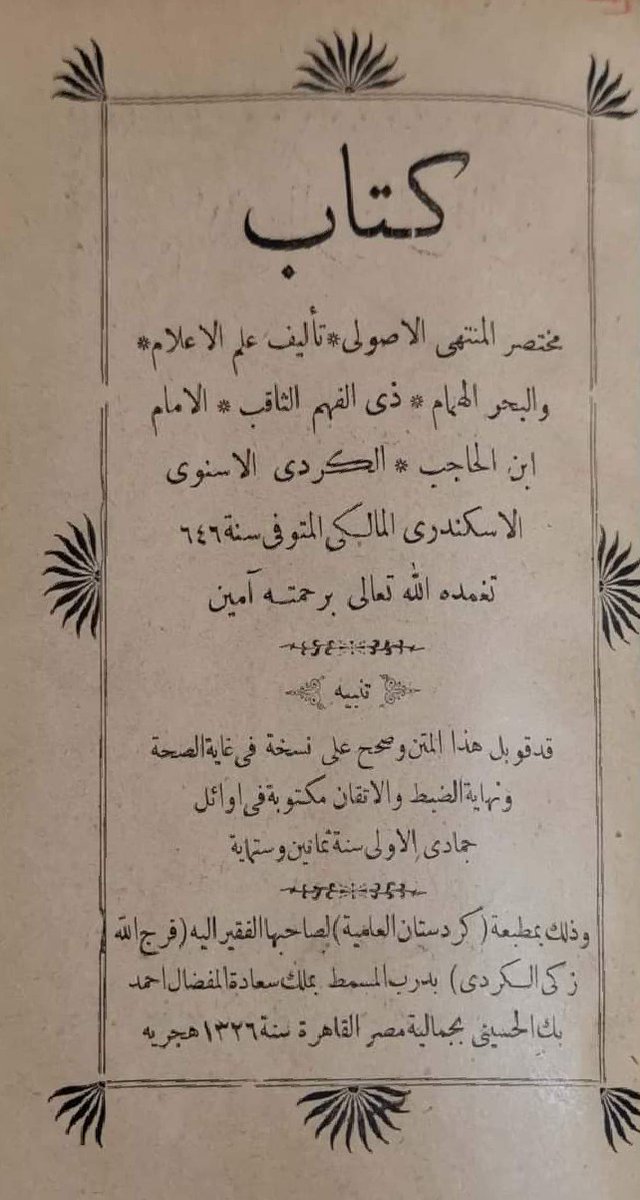 كتاب
مختصر المنتهى الاصولى * تأليف علم الاعلام *
والبحر الهمام * ذى الفهم الثاقب * الامام
ابن الحاجب * الكردى الاسنوى
الاسكندرى المالكى المتوفى سنة ٦٤٦
تغمده الله تعالى برحمته آمين
تنبيه
قد قوبل هذا المتن وصحح على نسخة فى غاية الصحة
ونهاية الضبط والاتقان مكتوبة فى اوائل
جمادى الاولى سنة ثمانين وستماية
وذلك بمطبعة (كردستان العلمية) لصاحبها الفقير اليه (فرج الله
زكى الكردى) بدرب المسمط بملك سعادة المفضال احمد
بك الحسينى بجمالية مصر القاهرة سنة ١٣٢٦ هجريه